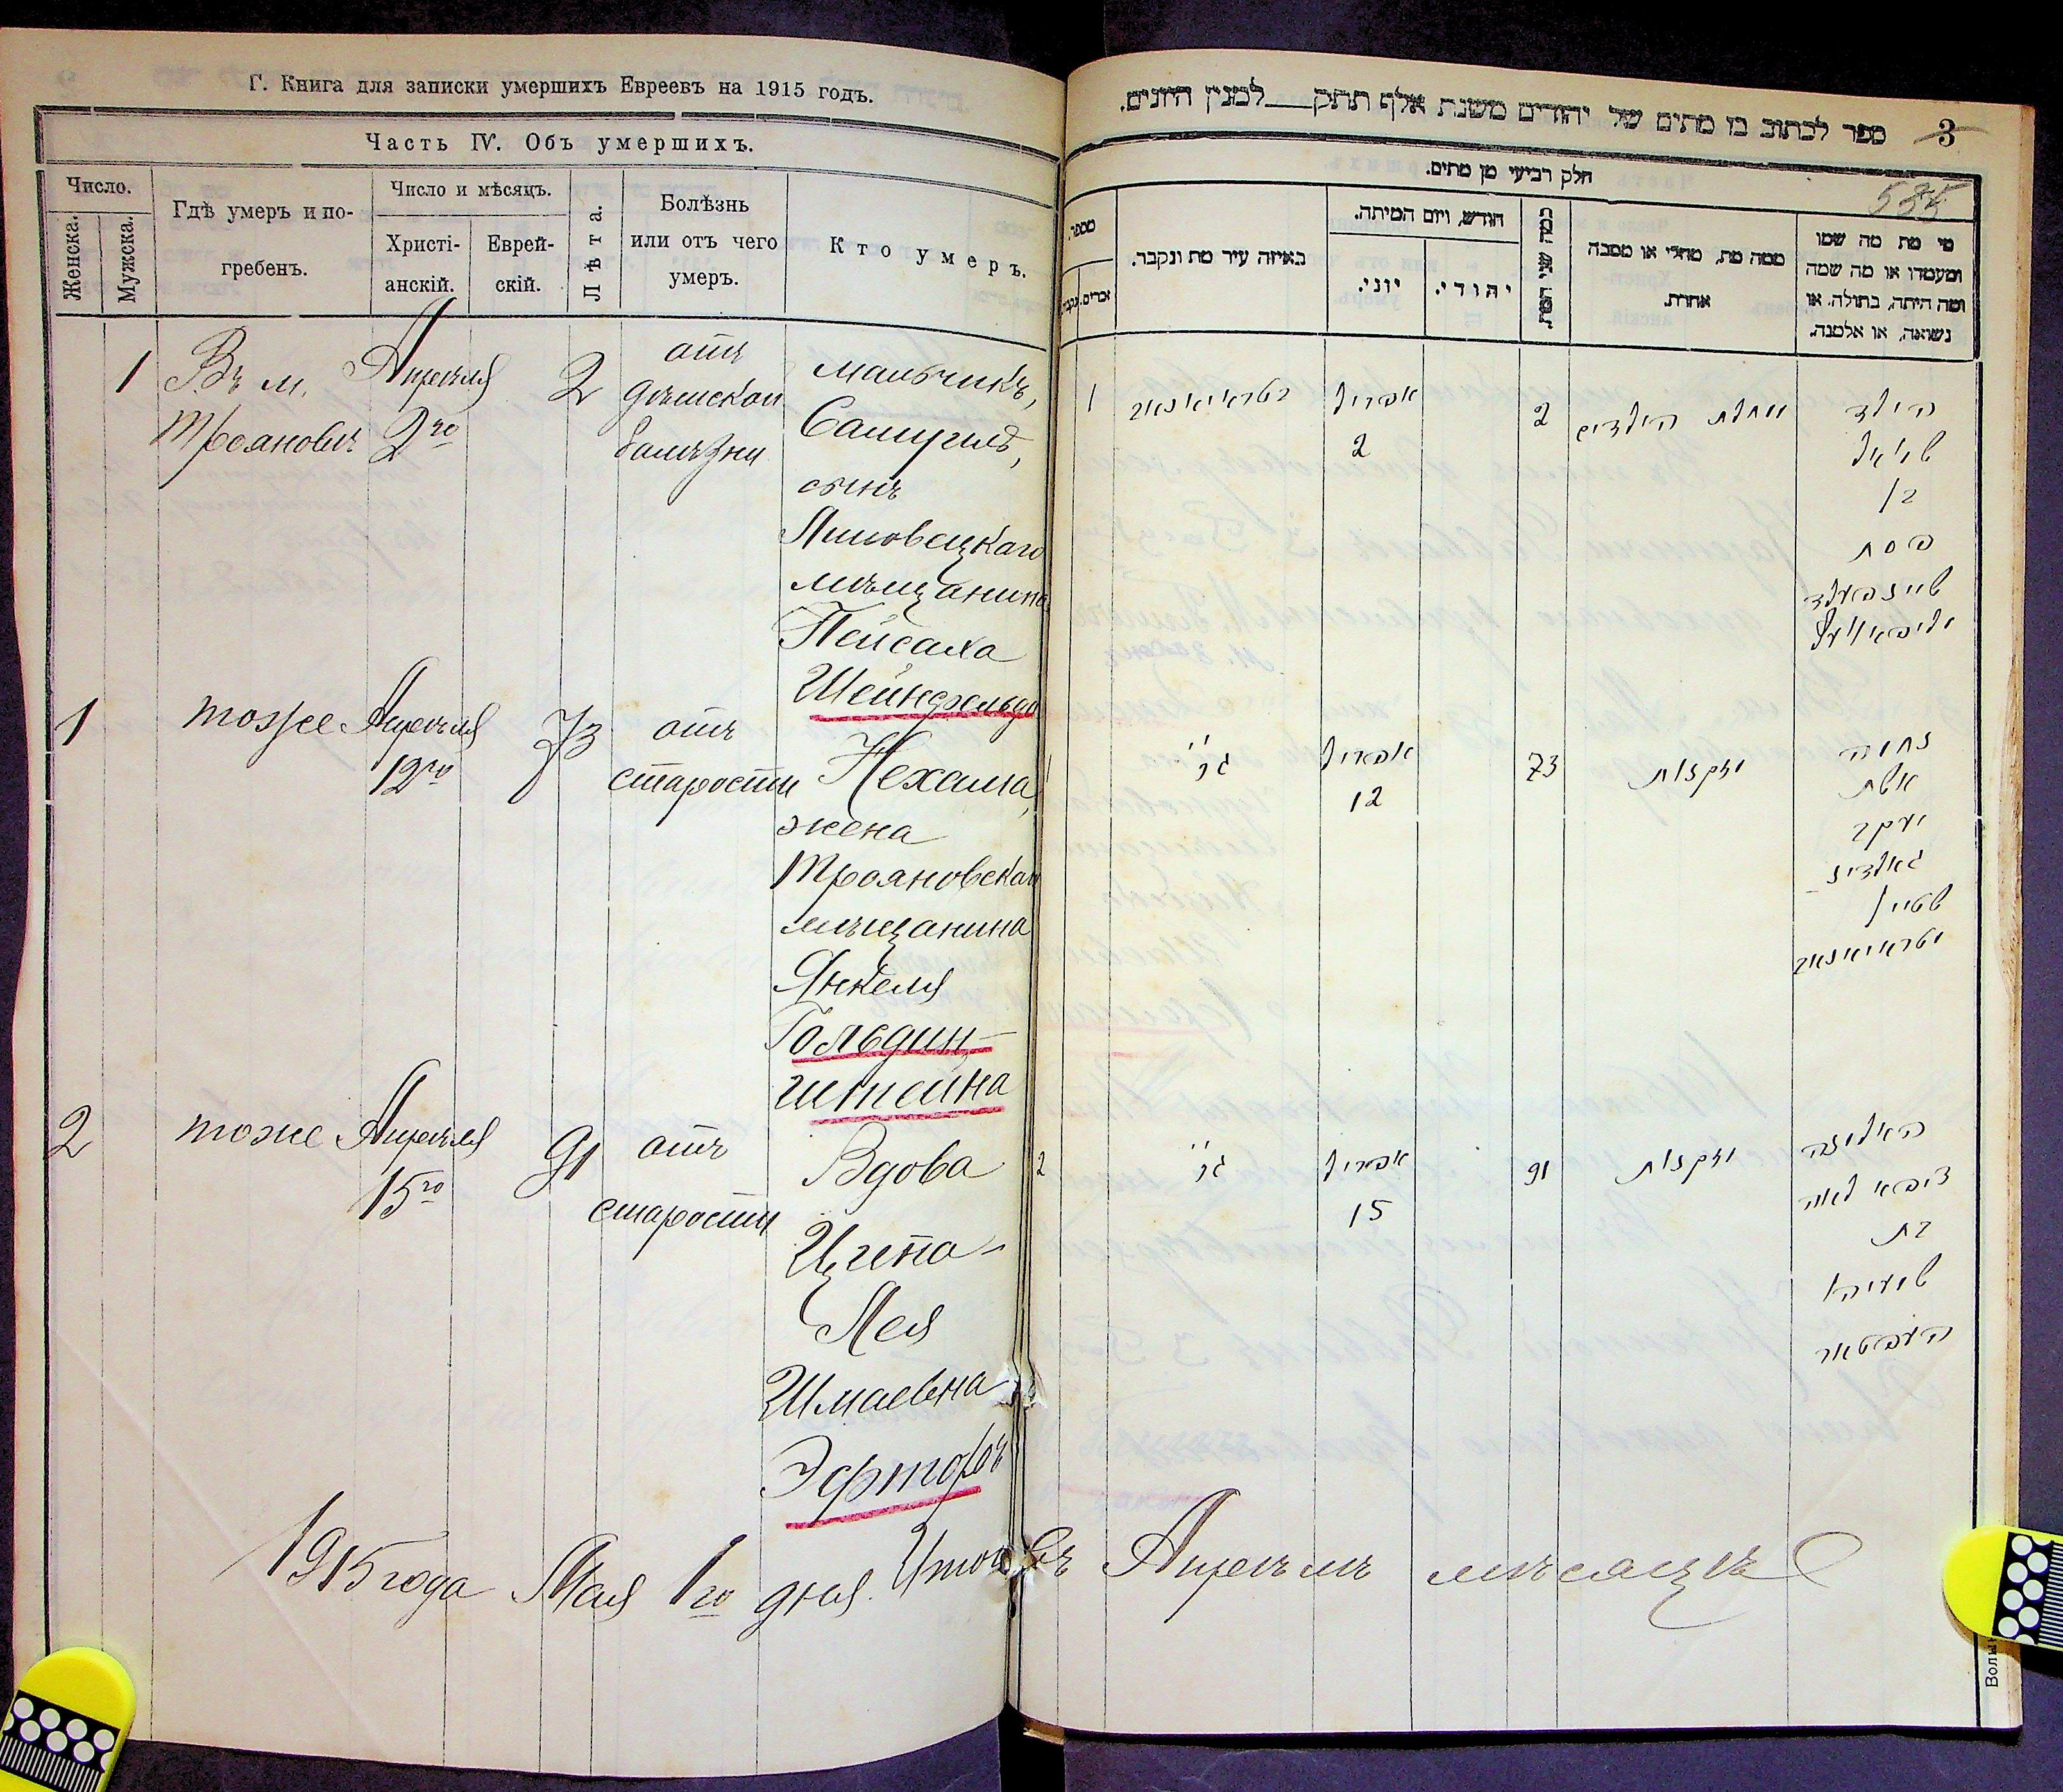 Г. Книга для записки умершихъ Евреевъ на 1915 годъ.
Часть IV. Объ умершихъ.
Число.
Женска.
Мужска.
Гдѣ умеръ и по-
гребенъ.
Число и мѣсяцъ.
Христі-
анскій.
Еврей-
скій.
Лѣта.
Болѣзнь
или отъ чего
умеръ.
Кто умеръ.
1
Въ м.
Трояновъ
Апрѣля
2го
2
отъ
дѣтской
болѣзни
мальчикъ,
Самуилъ,
сынъ
мѣщанина
Пейсаха
Шейнфельда
1
тоже
Апрѣля
12го
73
отъ
старости
Нехама,
жена
Трояновскаго
мѣщанина
Янкеля
Гольдин-
штейна
2
тоже
Апрѣля
15го
91
отъ
старости
Вдова
Ципа-
Лея
Шмаевна
1915 года Мая 1го дня. Итого въ Апрѣлѣ мѣсяцѣ
ספר לכתוב בו מתים של יהודים משנת אלף תתק___למנין היונים.
3
535
חלק רביעי מן מתים.
מספר.
זכרים.
נקבות
באיזה עיר מת ונקבר.
חודש, ויום המיתה.
יוני.
יהודי.
כמה שני המת.
ממה מת, מחלי או מסבה
אחרת.
מי מת מה שמו
ומעמדו או מה שמה
ומה היתה, בתולה, או
נשואה, או אלמנה.
1
בטראיאנאוו
אפריל
2
2
מחלת הילדים
הילד
בן
פסח
שיינפעלד
1
אפריל
12
73
מזקנות
נחמה
אשת
יעקב
גאלדינ-
שטיין
מטראיאנאוו
2
אפריל
15
91
מזקנות
האלמנה
ציפא לאה
בת
שמעיהו